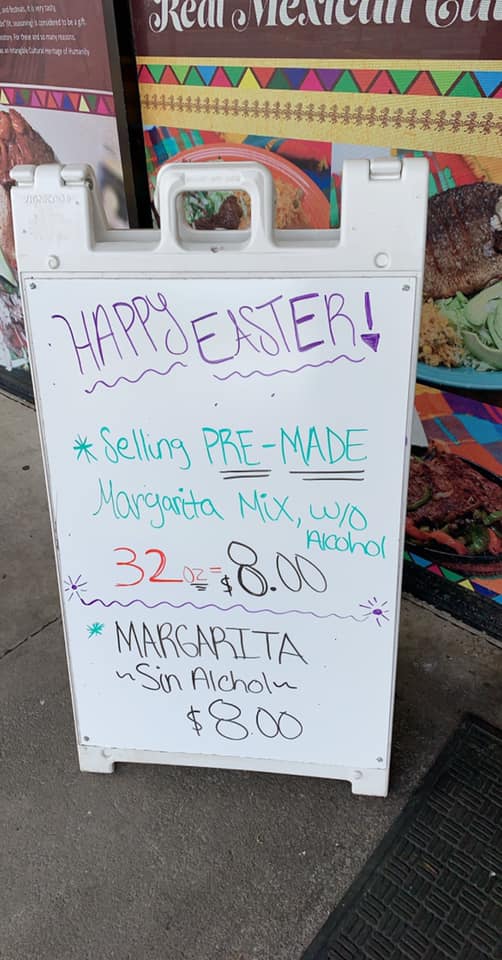 and festivals, it is very tasty,
seasoning) is considered to be a gift
history. For these and so many reasons,
as an Intangible Cultural Heritage of Humanity
Real Mexican
HAPPY EASTER!
* Selling PRE-MADE
Margarita Mix, w/o
Alcohol
32 oz = $8.00
* MARGARITA
~Sin Alchol~
$8.00